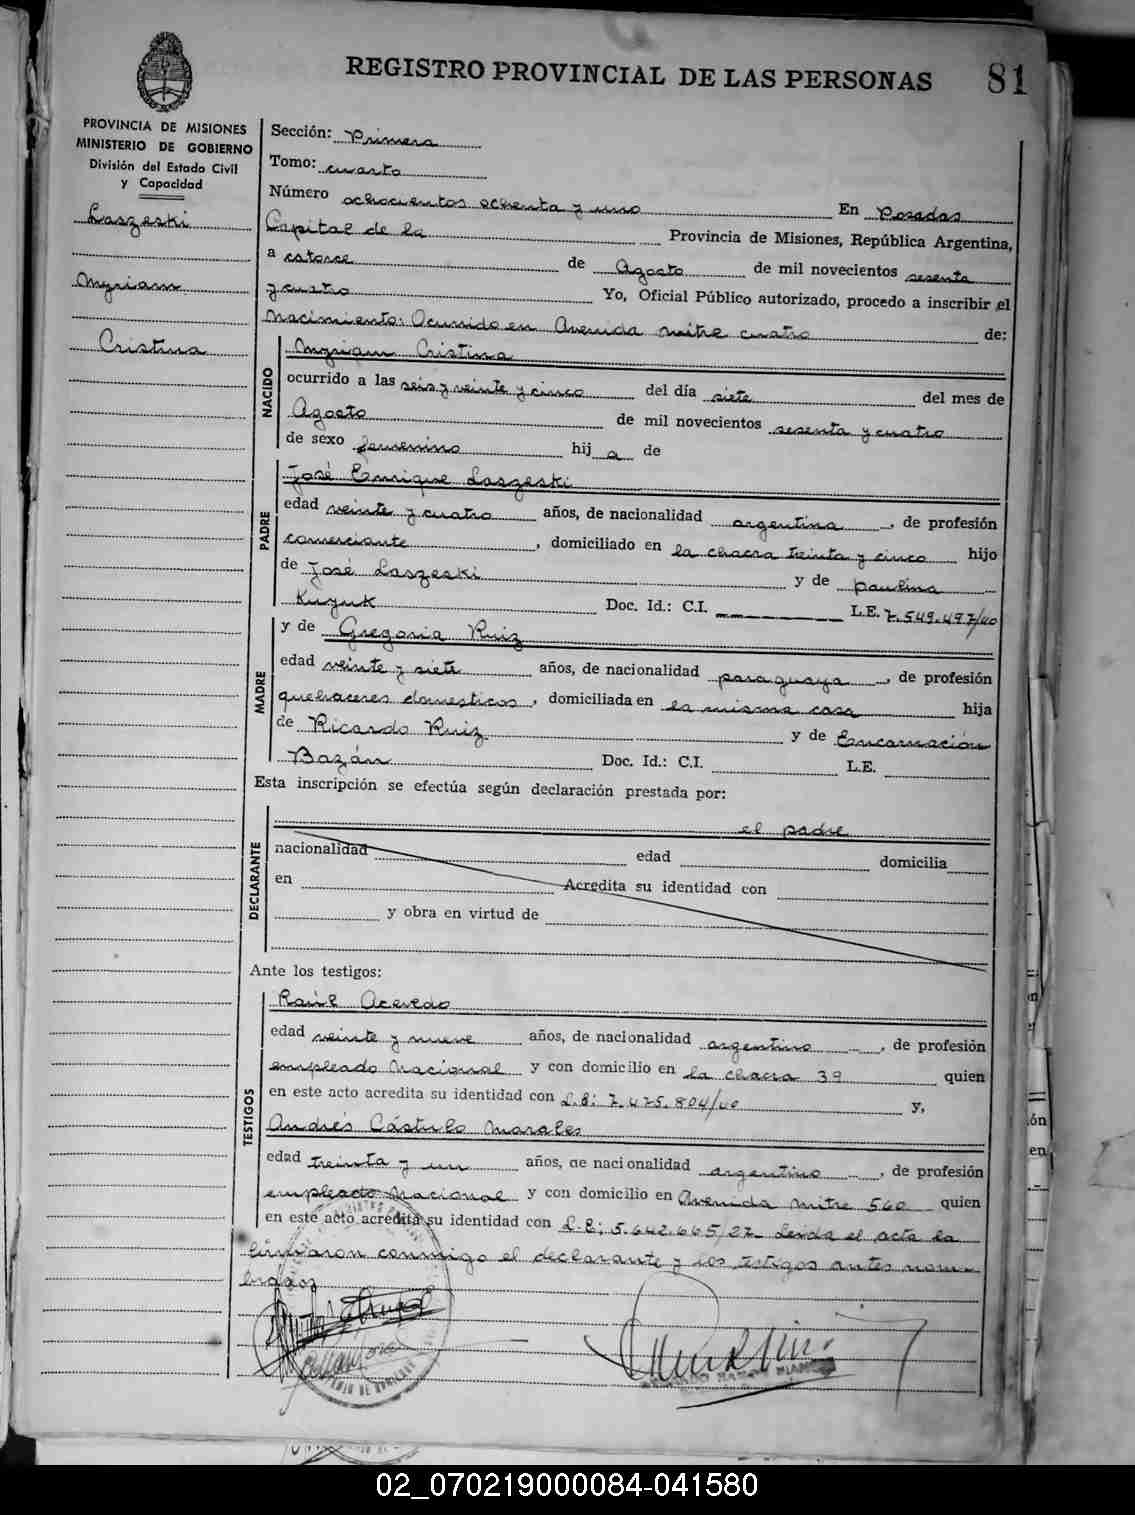 REGISTRO PROVINCIAL DE LAS PERSONAS 81
PROVINCIA DE MISIONES
MINISTERIO DE GOBIERNO
División del Estado Civil
y Capacidad
Laszeski
Myriam
Cristina
Sección: Primera
Tomo: cuarto
Número ochocientos ochenta y uno En Posadas
Capital de la Provincia de Misiones, República Argentina,
a catorce de Agosto de mil novecientos sesenta
y cuatro Yo, Oficial Público autorizado, procedo a inscribir el
Nacimiento: Ocurrido en Avenida mitre cuatro de:
NACIDO
Myriam Cristina
ocurrido a las seis y veinte y cinco del día siete del mes de
Agosto de mil novecientos sesenta y cuatro
de sexo femenino hij a de
PADRE
José Enrique Laszeski
edad veinte y cuatro años, de nacionalidad argentina, de profesión
comerciante, domiciliado en la chacra treinta y cinco hijo
de José Laszeski y de paulina
Kuzuk Doc. Id.: C.I. L.E. 7.549.497/40
MADRE
y de Gregoria Ruiz
edad veinte y siete años, de nacionalidad paraguaya, de profesión
quehaceres domesticos, domiciliada en la misma casa hija
de Ricardo Ruiz y de Encarnación
Bazán Doc. Id.: C.I. L.E.
Esta inscripción se efectúa según declaración prestada por:
DECLARANTE
el padre
nacionalidad edad domicilia
en Acredita su identidad con
y obra en virtud de
Ante los testigos:
TESTIGOS
Raúl Acevedo
edad veinte y nueve años, de nacionalidad argentino, de profesión
empleado Nacional y con domicilio en la chacra 39 quien
en este acto acredita su identidad con L.E: 7.475.804/40 y,
Andrés Cástulo Morales
edad treinta y un años, de nacionalidad argentino, de profesión
empleado Nacional y con domicilio en Avenida mitre 560 quien
en este acto acredita su identidad con L.E: 5.642.665/27 Leida el acta la
firmaron conmigo el declarante y los testigos antes nom-
brados
02_070219000084-041580